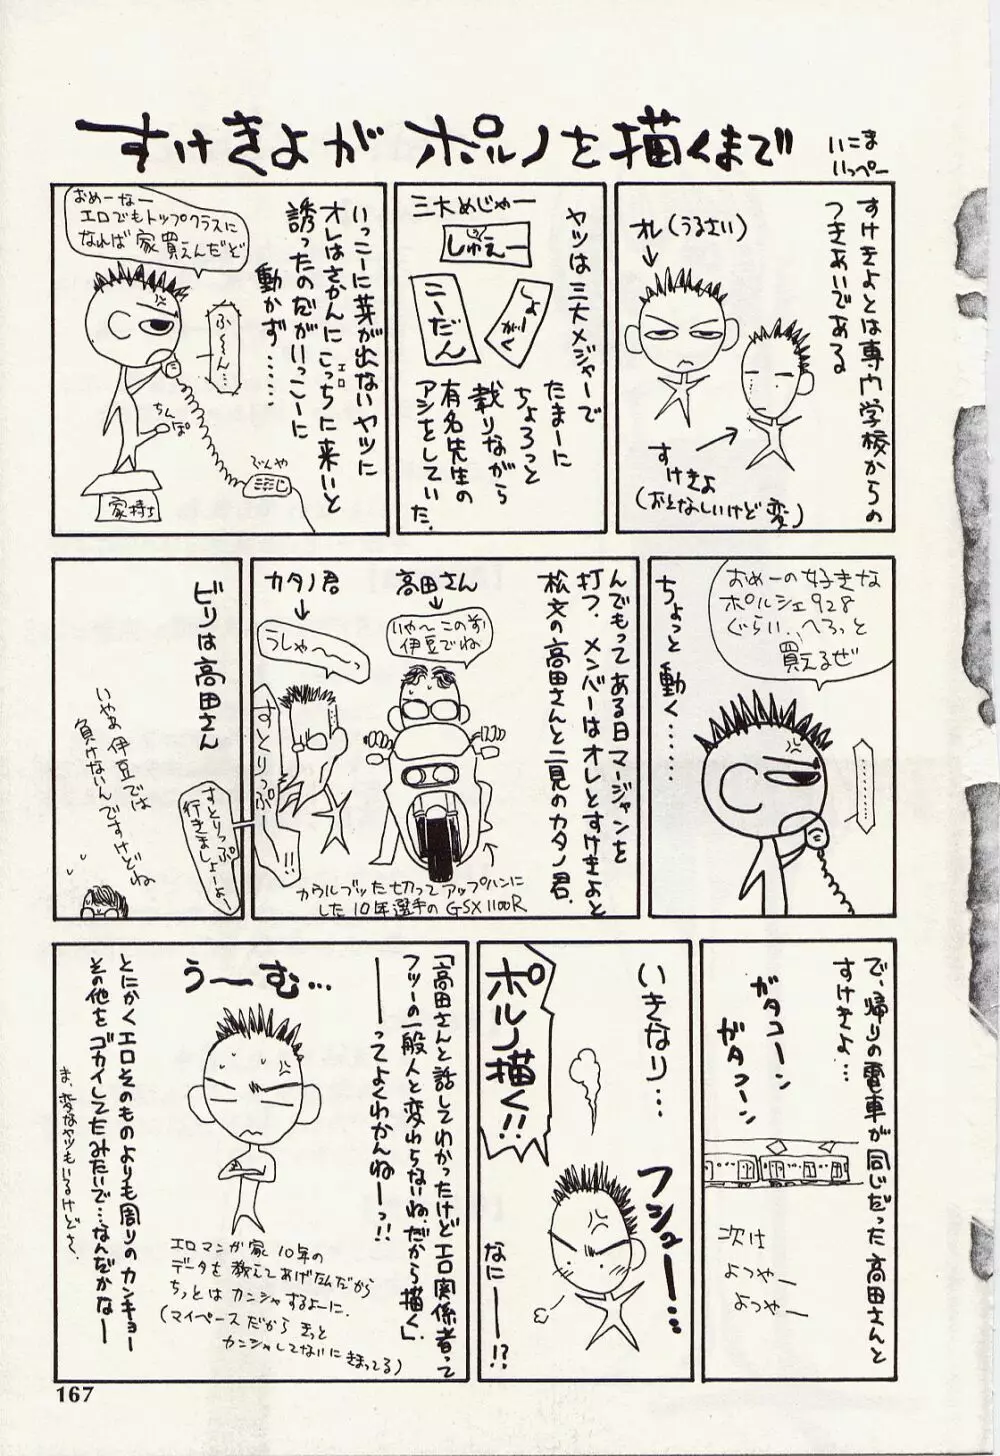 すけきよが ポルノを描くまで
いこま
いっぺー
すけきよとは専門学校からの
つきあいである
オレ(うるさい)
すけきよ
(おとなしいけど変)
ヤツは三大メジャーで
たまーに
ちょろっと
載りながら
有名先生の
アシをしていた.
三大めじゃー
しゅえー
しょーがく
こーだん
いっこーに芽が出ないヤツに
オレはさかんにこっちに来いと
エロ
誘ったのだがいっこーに
動かず……
おめーなー
エロでもトップクラスに
なれば家買えんだど
ふ〜〜ん…
ちんぽ
でんや
家持ち
おめーの好きな
ポルシェ928
ぐらい、へろっと
買えるぜ
ちょっと動く……
…………
んでもってある日マージャンを
打つ、メンバーはオレとすけきよと
松文の高田さんと二見のカタノ君.
高田さん
いや〜このまえ
伊豆でね
カタノ君
うしゃ〜〜っ
すとりっぷ!!
カウルブッた切ってアップハンに
した10年選手のGSX1100R
ビリは高田さん
すとりっぷ
行きましょーよー
いやぁ伊豆では
負けないんですけどね
で、帰りの電車が同じだった高田さんと
すけきよ…
ガタコーン
ガタコーン
次は
よつやー
よつやー
いきなり…
ポルノ描く!!
フシュー…
なにーー!?
「高田さんと話してわかったけどエロ関係者って
フツーの一般人と変わらないね.だから描く」.
――ってよくわかんねーっ!!
う〜む…
エロマンガ家10年の
データを教えてあげたんだから
ちっとはカンシャするよーに.
(マイペースだからきっと
カンシャしてないにきまってる)
とにかくエロそのものよりも周りのカンキョー
その他をゴカイしてたみたいで…なんだかなー
ま、変なヤツもいるけどさ.
167